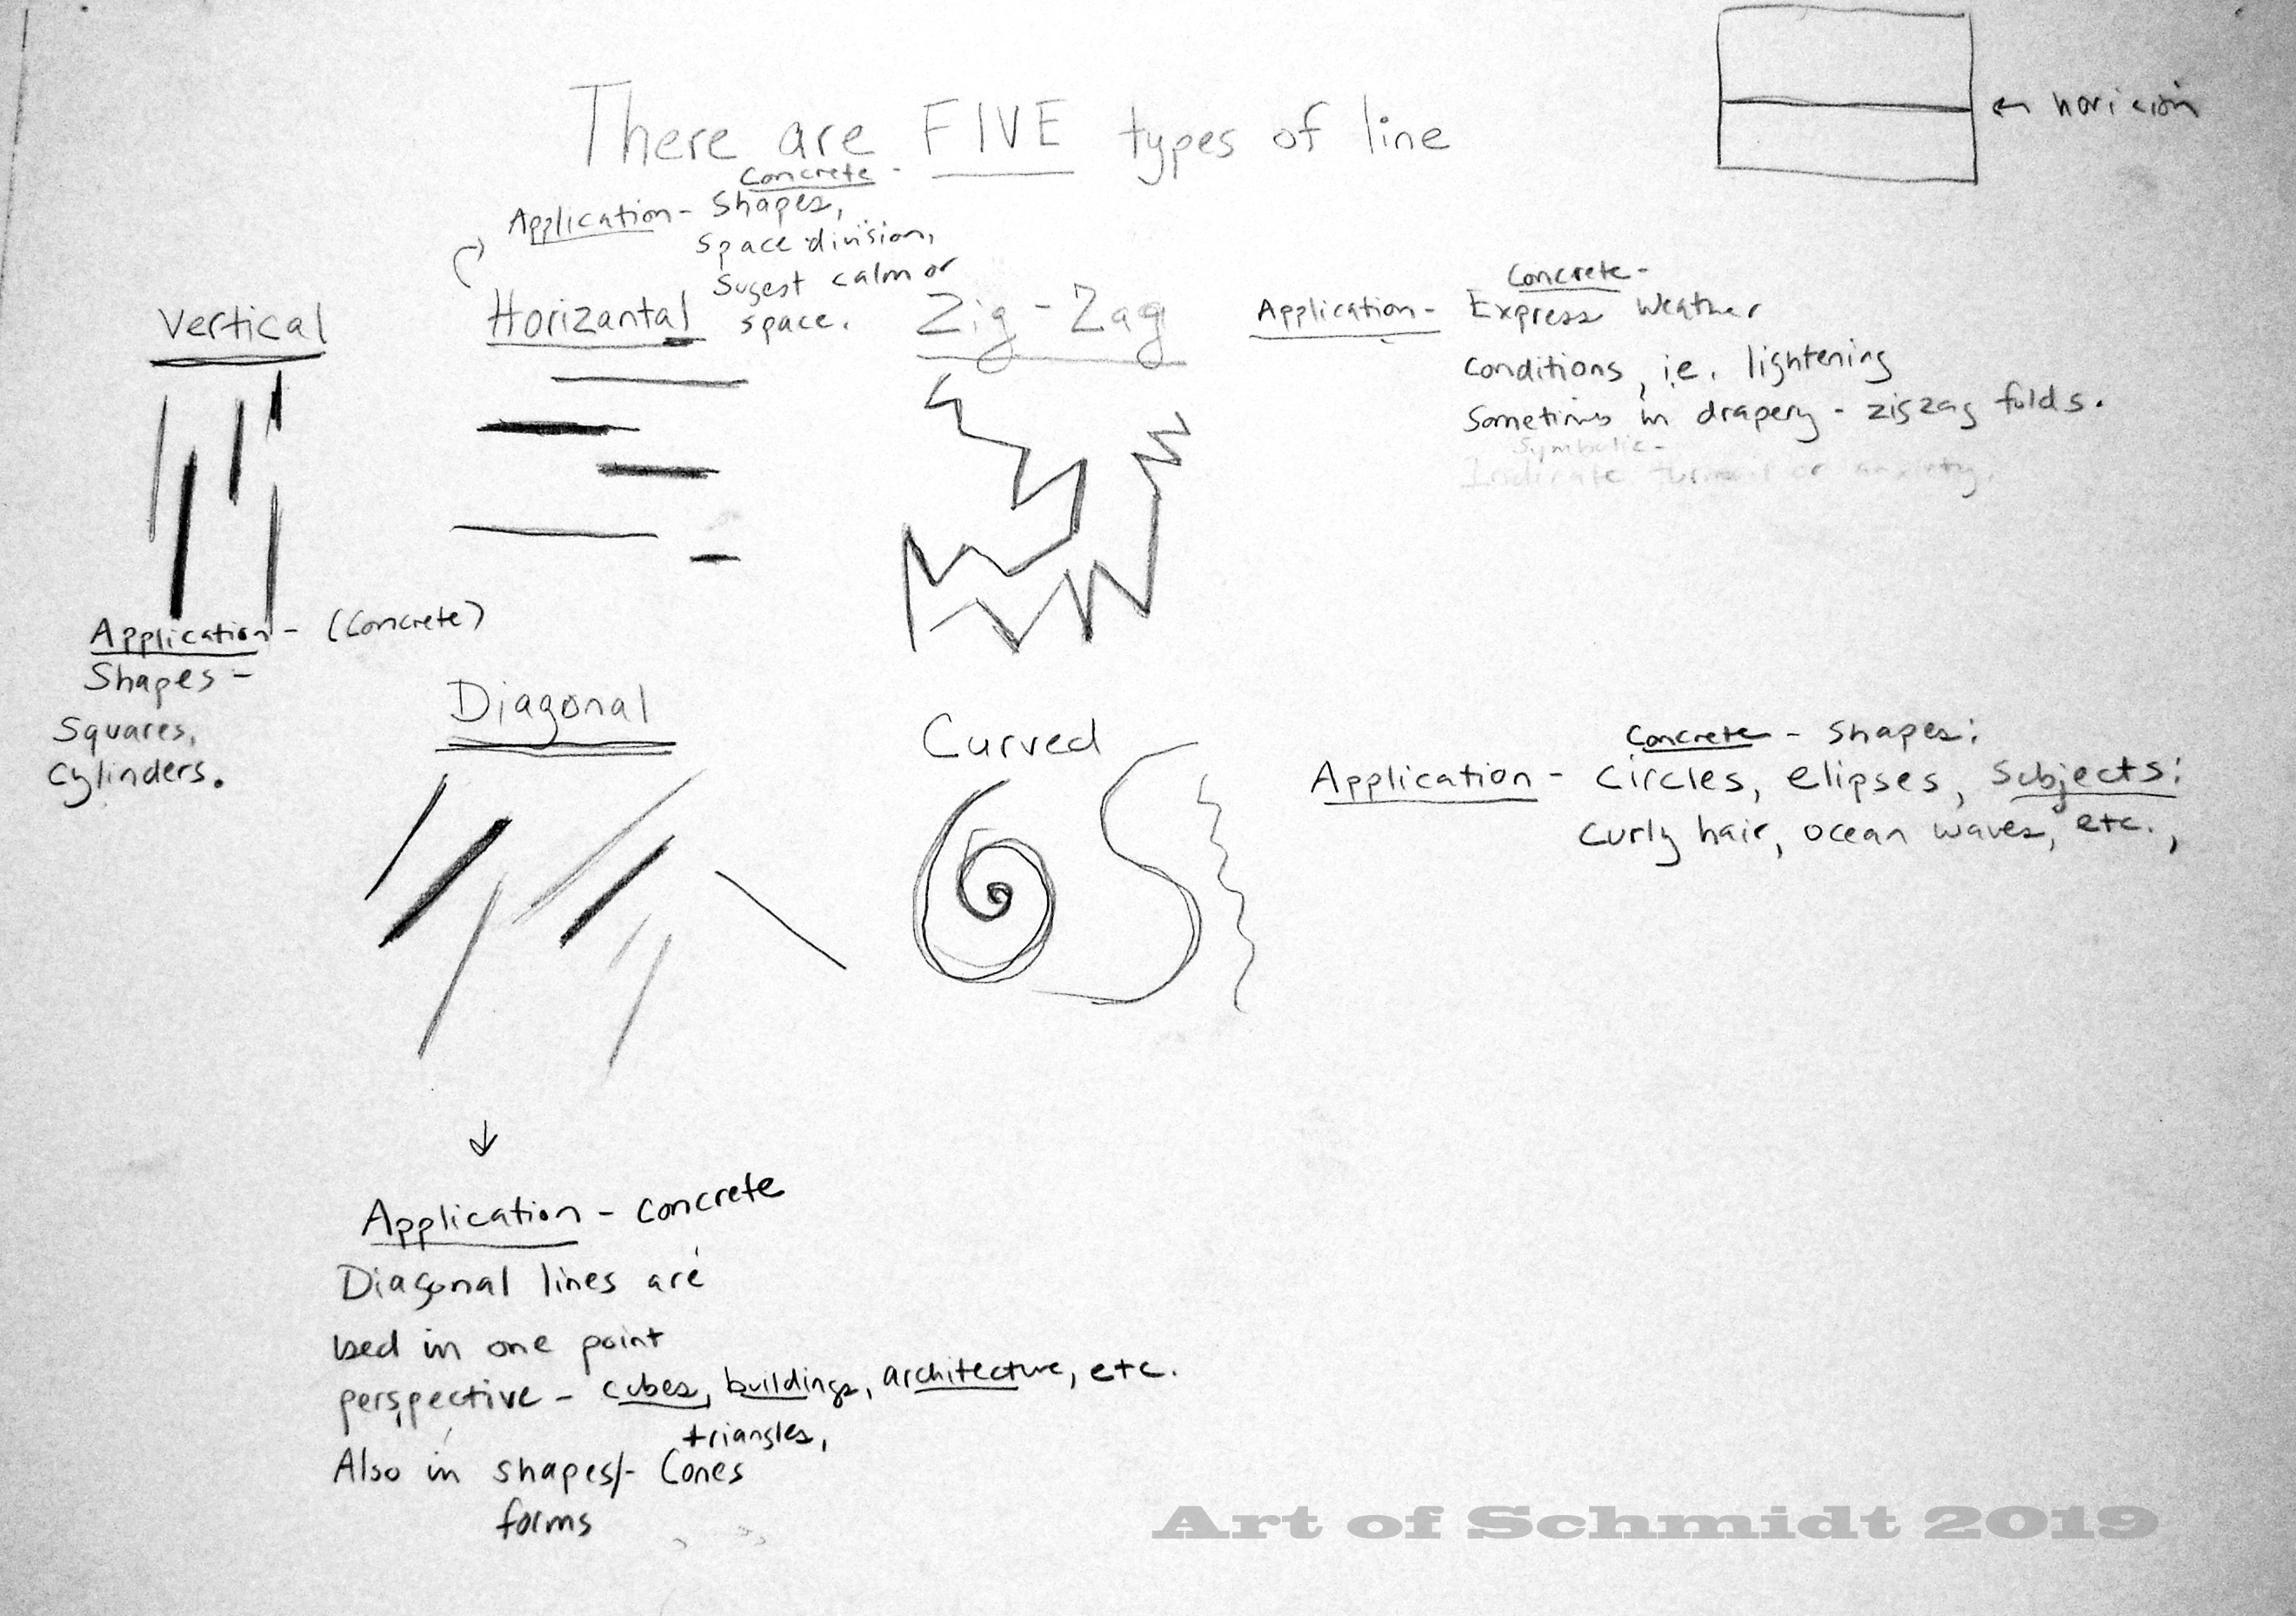 There are FIVE types of line
← horizion
Application - Concrete -
Shapes,
space division,
Sugest calm or
space.
Vertical
Horizantal
Zig-Zag
Application - Concrete -
Express Weather
Conditions, i.e. lightening
Sometimes in drapery - zigzag folds.
Symbolic -
Indicate turmoil or anxiety.
Application - (Concrete)
Shapes -
Squares,
Cylinders.
Diagonal
Curved
Concrete - Shapes:
Application - Circles, elipses, Subjects:
Curly hair, ocean waves, etc.,
Application - Concrete
Diagonal lines are
used in one point
perspective - cubes, buildings, architecture, etc.
triangles,
Also in shapes/- Cones
forms
Art of Schmidt 2019